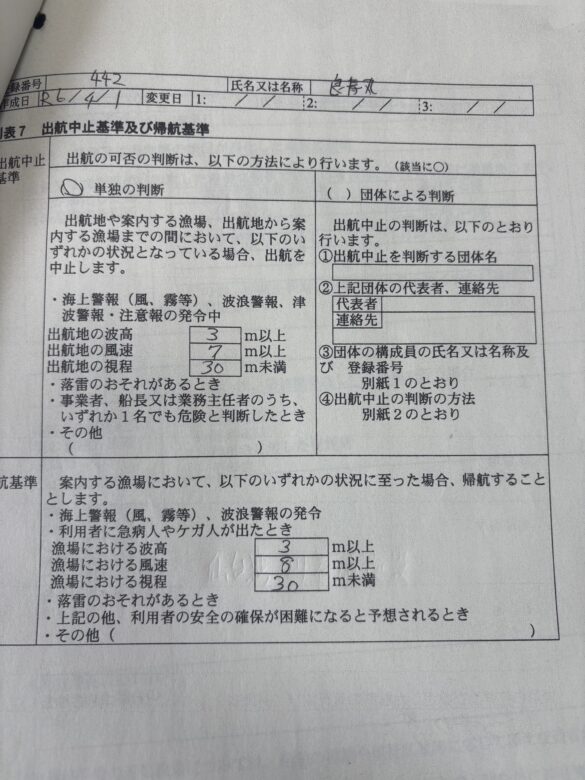 登録番号 442 氏名又は名称
作成日 R6/4/1 変更日 1: / / 2: / / 3: / /
別表7 出航中止基準及び帰航基準
出航中止基準
出航の可否の判断は、以下の方法により行います。(該当に○)
(○) 単独の判断
出航地や案内する漁場、出航地から案
内する漁場までの間において、以下のい
ずれかの状況となっている場合、出航を
中止します。
・海上警報(風、霧等)、波浪警報、津
波警報・注意報の発令中
出航地の波高 3 m以上
出航地の風速 7 m以上
出航地の視程 30 m未満
・落雷のおそれがあるとき
・事業者、船長又は業務主任者のうち、
いずれか1名でも危険と判断したとき
・その他
( )
( ) 団体による判断
出航中止の判断は、以下のとおり
行います。
①出航中止を判断する団体名
②上記団体の代表者、連絡先
代表者
連絡先
③団体の構成員の氏名又は名称及
び 登録番号
別紙1のとおり
④出航中止の判断の方法
別紙2のとおり
航基準
案内する漁場において、以下のいずれかの状況に至った場合、帰航すること
とします。
・海上警報(風、霧等)、波浪警報の発令
・利用者に急病人やケガ人が出たとき
漁場における波高 3 m以上
漁場における風速 8 m以上
漁場における視程 30 m未満
・落雷のおそれがあるとき
・上記の他、利用者の安全の確保が困難になると予想されるとき
・その他 ( )